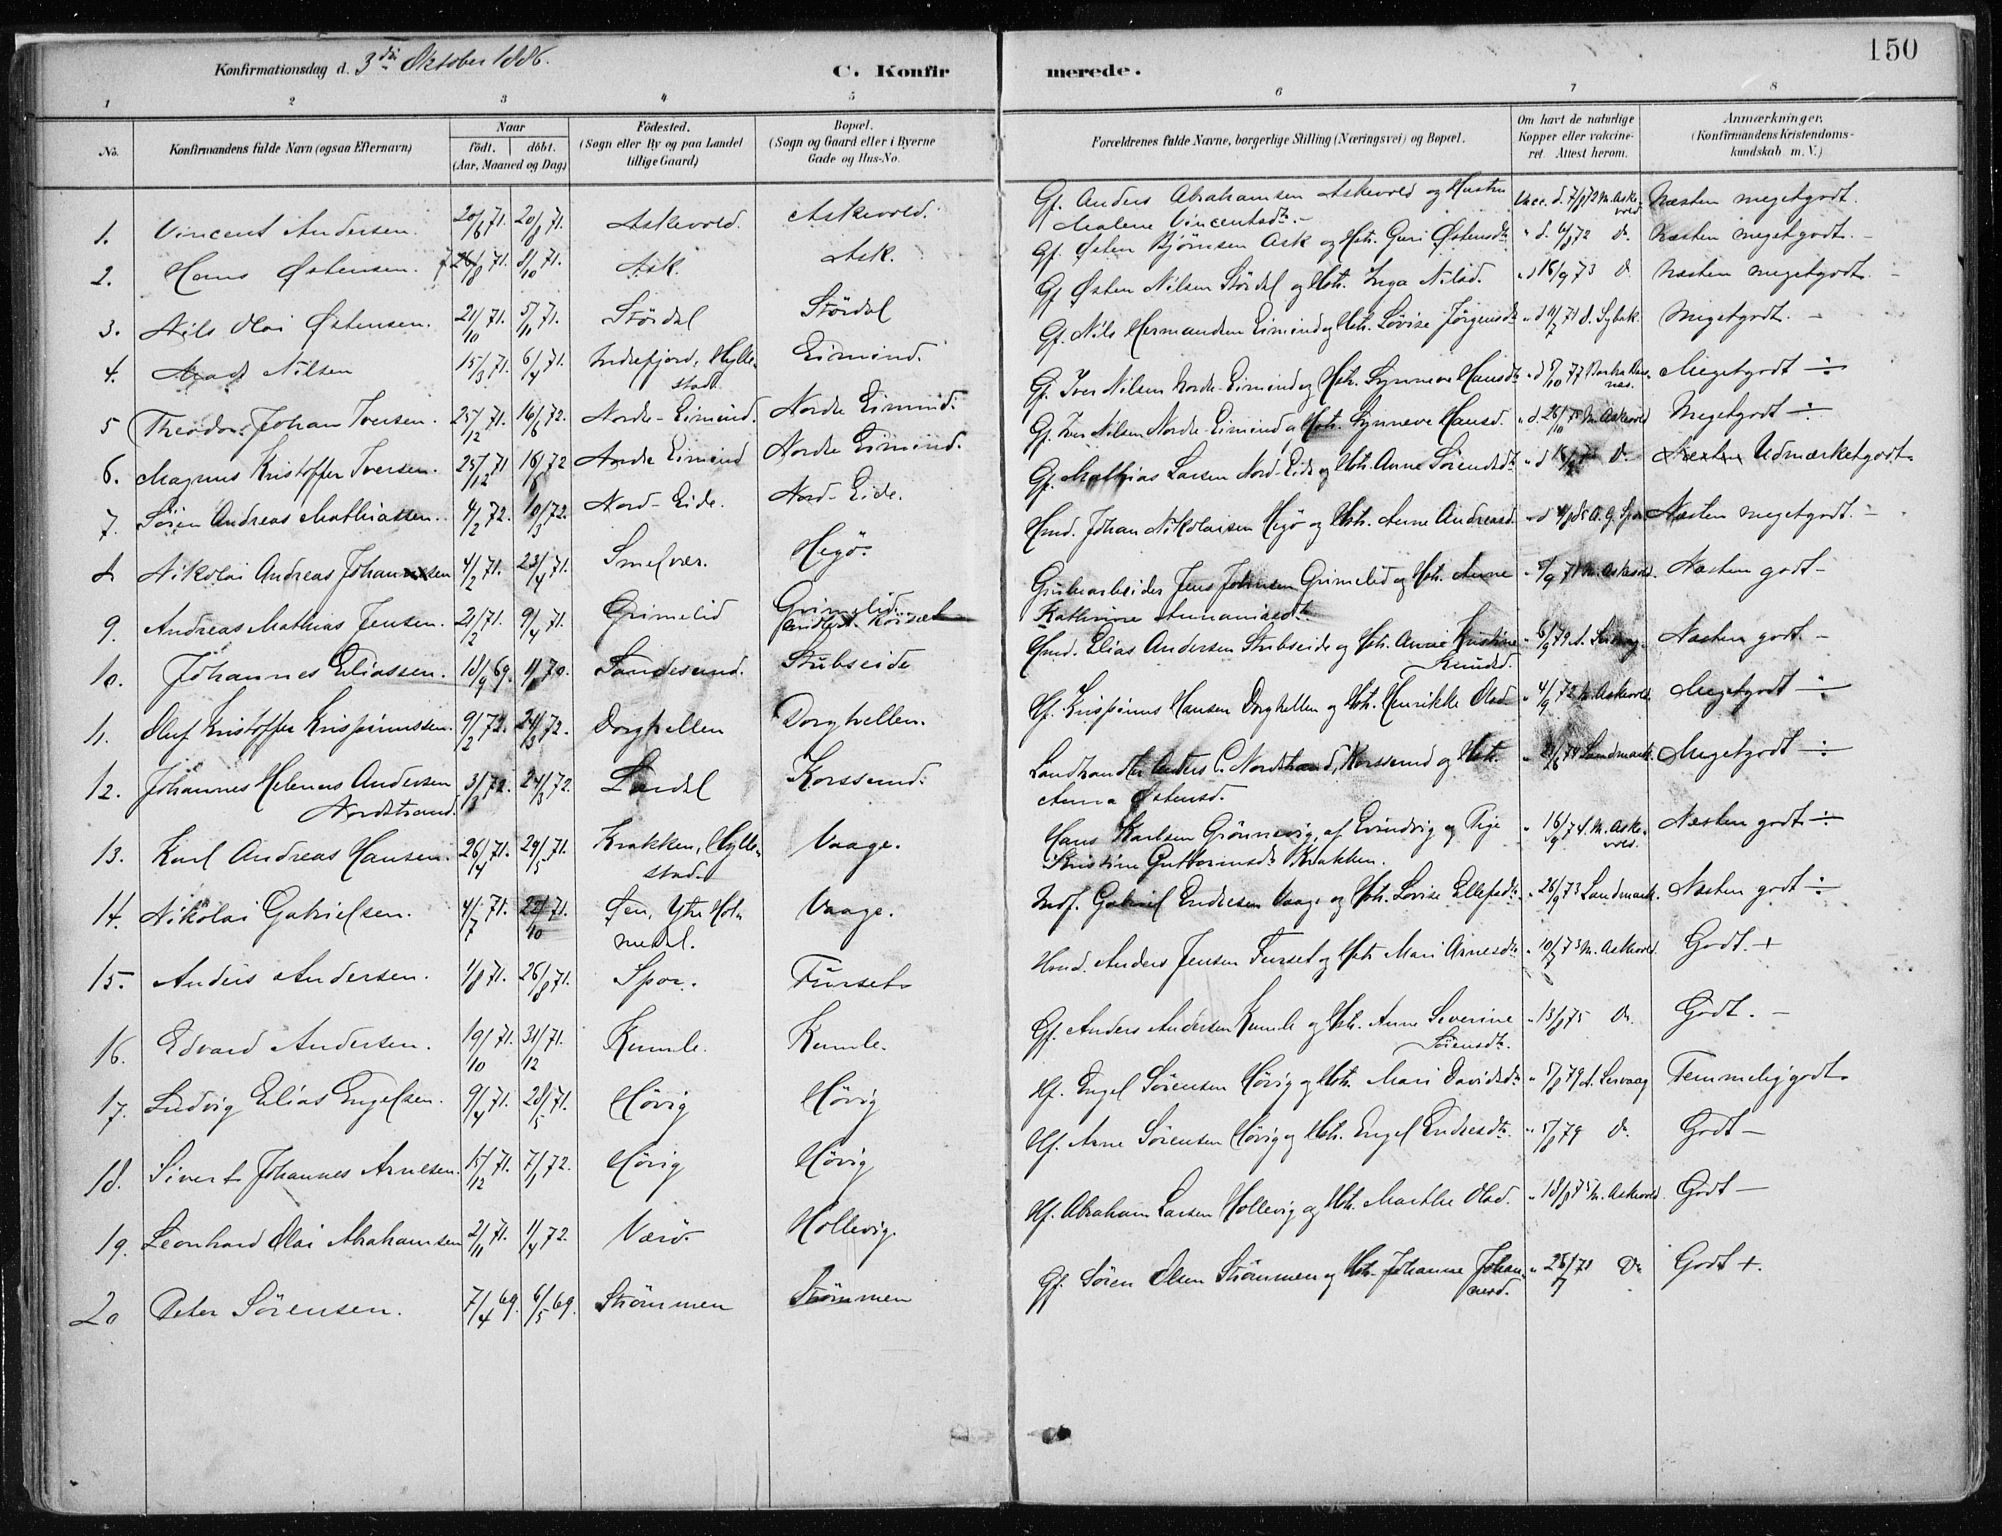 150
Konfirmationsdag d. 3die Oktober 1886.
C. Konfirmerede.
1 2 3 4 5 6 7 8
No. Konfirmandens fulde Navn (ogsaa Efternavn) Naar født. døbt. (Aar, Maaned og Dag) Födested. (Sogn eller By og paa Landet tillige Gaard) Bopæl. (Sogn og Gaard eller i Byerne Gade og Hus-No. Forældrenes fulde Navne, borgerlige Stilling (Næringsvei) og Bopæl. Om havt de naturlige Kopper eller vaccineret. Attest herom. Anmærkninger. (Konfirmandens Kristendomskundskab m. V.)
1. Vincent Andersen. 20/6 71. 20/8 71. Askevold. Askevold. Gf. Anders Abrahamsen Askevold og Hustru Malene Vincentsdtr. Vacc. d. 7/8 72 M. Askevold. Næsten megetgodt.
2. Hans Østensen. 26/8 71. 8/10 71. Ask. Ask. Gf. Østen Bjørnsen Ask og Hstr. Guri Østensdtr. " d. 6/8 72 Do. Næsten megetgodt. -
3. Nils Olai Østensen. 21/10 71. 5/11 71. Stördal Stördal Gf. Østen Nilsen Stördal og Hstr. Inga Nilsd. " d 16/9 73 Do. Næsten megetgodt -
4. Mads Nilsen 15/3 71. 6/4 71. Indrefjord, Hyllestad. Eimind. Gf. Nils Hermandsen Eimind og Hstr. Lövise Jörgensdtr " d 11/7 71 S. Sybak. Megetgodt. -
5 Theodor Johan Iversen. 25/12 71. 16/6 72. Nordre-Eimind. Nordre Eimind. Gf. Iver Nilsen Nordre-Eimind og Hstr. Synneve Hansdtr " d 5/10 77 Megetgodt ÷
6. Magnus Kristoffer Iversen. 25/12 71 16/6 72 Nordre Eimind Nordre Eimind. Gf. Iver Nilsen Nordre-Eimind og Hstr. Synneve Hansd. " d. 26/10 75 M. Askevold Megetgodt ÷
7. Sören Andreas Mathiassen. 4/2 72. 10/3 72. Nord-Eide. Nord-Eide. Gf. Mathias Larsen Nord-Eide og Hstr. Anne Sörensdtr. Do. Næsten Udmærketgodt.
8 Nikolai Andreas Johannsen 4/2 71. 23/4 71. Smelvær. Hegö. Hmd. Johan Nikolaisen Hegö og Hstr. Anne Andreasd. Næsten megetgodt. -
9. Andreas Mathias Jensen. 21/2 71. 9/4 71. Grimelid Grimelid. Grubearbeider Jens Johnsen Grimelid og Hstr. Anne Kathrine M. Askevold. Næsten godt -
10. Johannes Eliassen. 18/9 69. Sandesund. Stubseide Hmd. Elias Andersen Stubseide og Hstr. Anne Kristine Knudsd. Næsten godt. -
11. Oluf Kristoffer Krispinussen. 9/2 72. 24/3 72. Dorghellen Dorghellen. Hf. Krispinus Hansen Dorghellen og Hstr. Henrikke Olsd " 4/9 72 M. Askevold. Megetgodt ÷
12. Johannes Helenus Andersen Nordstrand. 3/1 72. 24/3 72. Korssund. Landhandler Anders C. Nordstrand, Korssund og Hstr. Anna Østensd. Landmark. Megetgodt ÷
13. Karl Andreas Hansen. 26/4 71. 29/5 71. Krakken, Hyllestad. Vaage. Hans Karlsen Grönnevig, af Evindvig og Pige Kristine Guttormsdtr Krakken. " 16/9 74 M. Askevold. Næsten godt ÷
14. Nikolai Gabrielsen. 4/7 71. 22/10 71. Ytre Holmedal. Vaage. Indf. Gabriel Endresen Vaage og Hstr. Lovise Ellefsdtr. " 26/9 73 Landmark. Næsten godt ÷
15. Anders Andersen. 1/8 71. 26/8 71. Spor. Furset. Hmd. Anders Jensen Furset og Hstr Mari Arnesdtr. " 10/7 73 M. Askevold. Godt. +
16. Edvard Andersen. 19/10 71. 31/12 71. Kumle. Kumle. Gf. Anders Andersen Kumle og Hstr. Anne Severine Sörensdtr. " 13/8 75 Do. Godt. -
17. Ludvig Elias Engelsen. 9/4 71. 28/5 71. Hövig Hövig Hf. Engel Sörensen Hövig og Hstr. Mari Davidsdtr " 5/8 79 A. Servaag Temmelig godt.
18. Sivert Johannes Arnesen. 15/12 71. 7/1 72. Hövig Hövig Hf. Arne Sörensen Hövig og Hstr. Engel Endresdtr. " 5/8 79 Do. Godt -
19. Leonhard Olai Abrahamsen 2/11 71. 1/4 72. Værö. Hollevig. Hf. Abraham Larsen Hollevig og Hstr. Marthe Olsd. " 18/8 75 M. Askevold. Godt -
20 Peter Sörensen. 7/4 69. 6/5 69. Strömmen Strömmen Gf. Sören Olsen Strömmen og Hstr. Johanne Johannesd. " 26/7 71 Do Godt +.